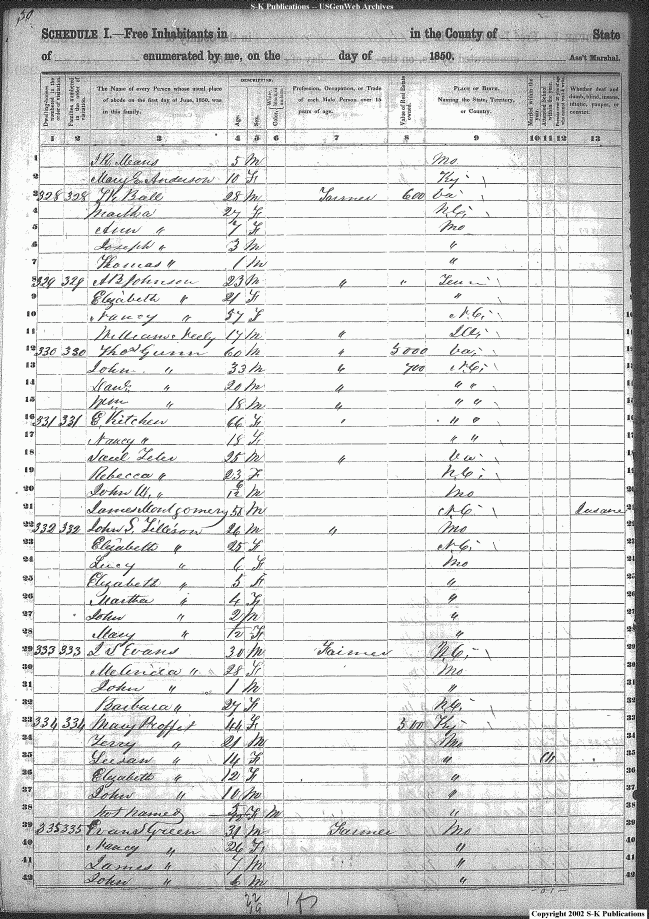 S-K Publications -- USGenWeb Archives
50
SCHEDULE I.—Free Inhabitants in in the County of State
of enumerated by me, on the day of 1850. Ass't Marshal.
DESCRIPTION.
Dwelling-houses numbered in the order of visitation.
Families numbered in the order of visitation.
The Name of every Person whose usual place of abode on the first day of June, 1850, was in this family.
Age.
Sex.
Profession, Occupation, or Trade of each Male Person over 15 years of age.
Value of Real Estate owned.
PLACE OF BIRTH. Naming the State, Territory, or Country.
Married within the year.
Whether deaf and dumb, blind, insane, idiotic, pauper, or convict.
1 2 3 4 5 6 7 8 9 10 11 12 13
1 Means 5 M Mo
2 Mary E. Anderson 10 F Ky
3 328 328 Ball 28 M Farmer 600 Va
4 Martha 27 F N.C.
5 Ann " 7 F Mo
6 Joseph " 3 M "
7 Thomas " 1 M "
8 329 329 A B Johnson 23 M " " Tenn
9 Elizabeth " 21 F "
10 Nancy " 57 F N.C.
11 William Neely 17 M " Ill.
12 330 330 Thos Gunn 60 M " 3000 Va.
13 John " 33 M " 700 N.C.
14 " 20 M " " "
15 Wm " 18 M " " "
16 331 331 E Kitchen 66 F " "
17 Nancy " 18 F " "
18 25 M " Va
19 Rebecca " 23 F N.C.
20 John W. " M Mo
21 James Montgomery 51 M N.C. Insane
22 332 332 John S. 26 M " Mo
23 Elizabeth " 25 F N.C.
24 Lucy " 6 F Mo
25 Elizabeth " 5 F "
26 Martha " 4 F "
27 John " 2 M "
28 Mary " F "
29 333 333 Evans 30 M Farmer N.C.
30 Melinda " 28 F Mo
31 John " 1 M "
32 Barbara " 27 F N.C.
33 334 334 Mary Proffit 44 F 500 Ky
34 " 21 M Mo
35 " 14 F "
36 Elizabeth " 12 F "
37 John " 10 M "
38 Not named F "
39 335 335 Evans Green 31 M Farmer Mo
40 Nancy " 26 F "
41 James " 7 M "
42 John " 6 M "
22
19
Copyright 2002 S-K Publications